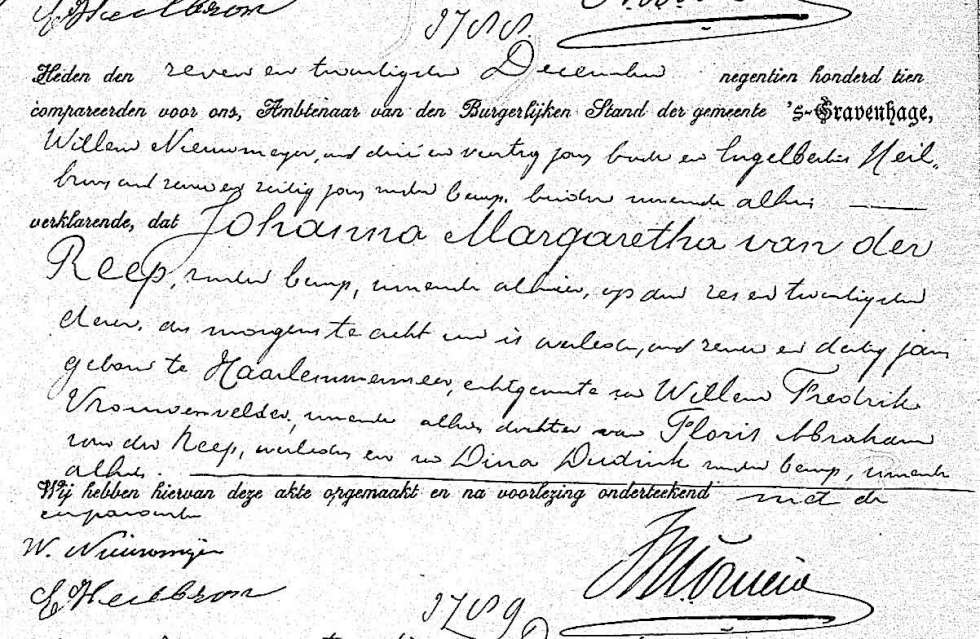 E Heilbron
3788.
Heden den zeven en twintigsten December negentien honderd tien
compareerden voor ons, Ambtenaar van den Burgerlijken Stand der gemeente 's-Gravenhage,
Willem Nieuwmeyer, oud drie en veertig jaar, bode en Engelbertus Heil-
bron oud zeven en zestig jaar zonder beroep, beiden wonende alhier
verklarende, dat Johanna Margaretha van der
Reep, zonder beroep, wonende alhier, op den zes en twintigsten
dezer, des morgens te acht ure is overleden, oud zeven en dertig jaar
geboren te Haarlemmermeer, echtgenoote van Willem Fredrik
Vrouwenvelder, wonende alhier dochter van Floris Abraham
van der Reep, overleden en van Dina Dudink zonder beroep, wonende
alhier.
Wij hebben hiervan deze akte opgemaakt en na voorlezing onderteekend met de
comparanten
W. Nieuwmeijer
E Heilbron
3789